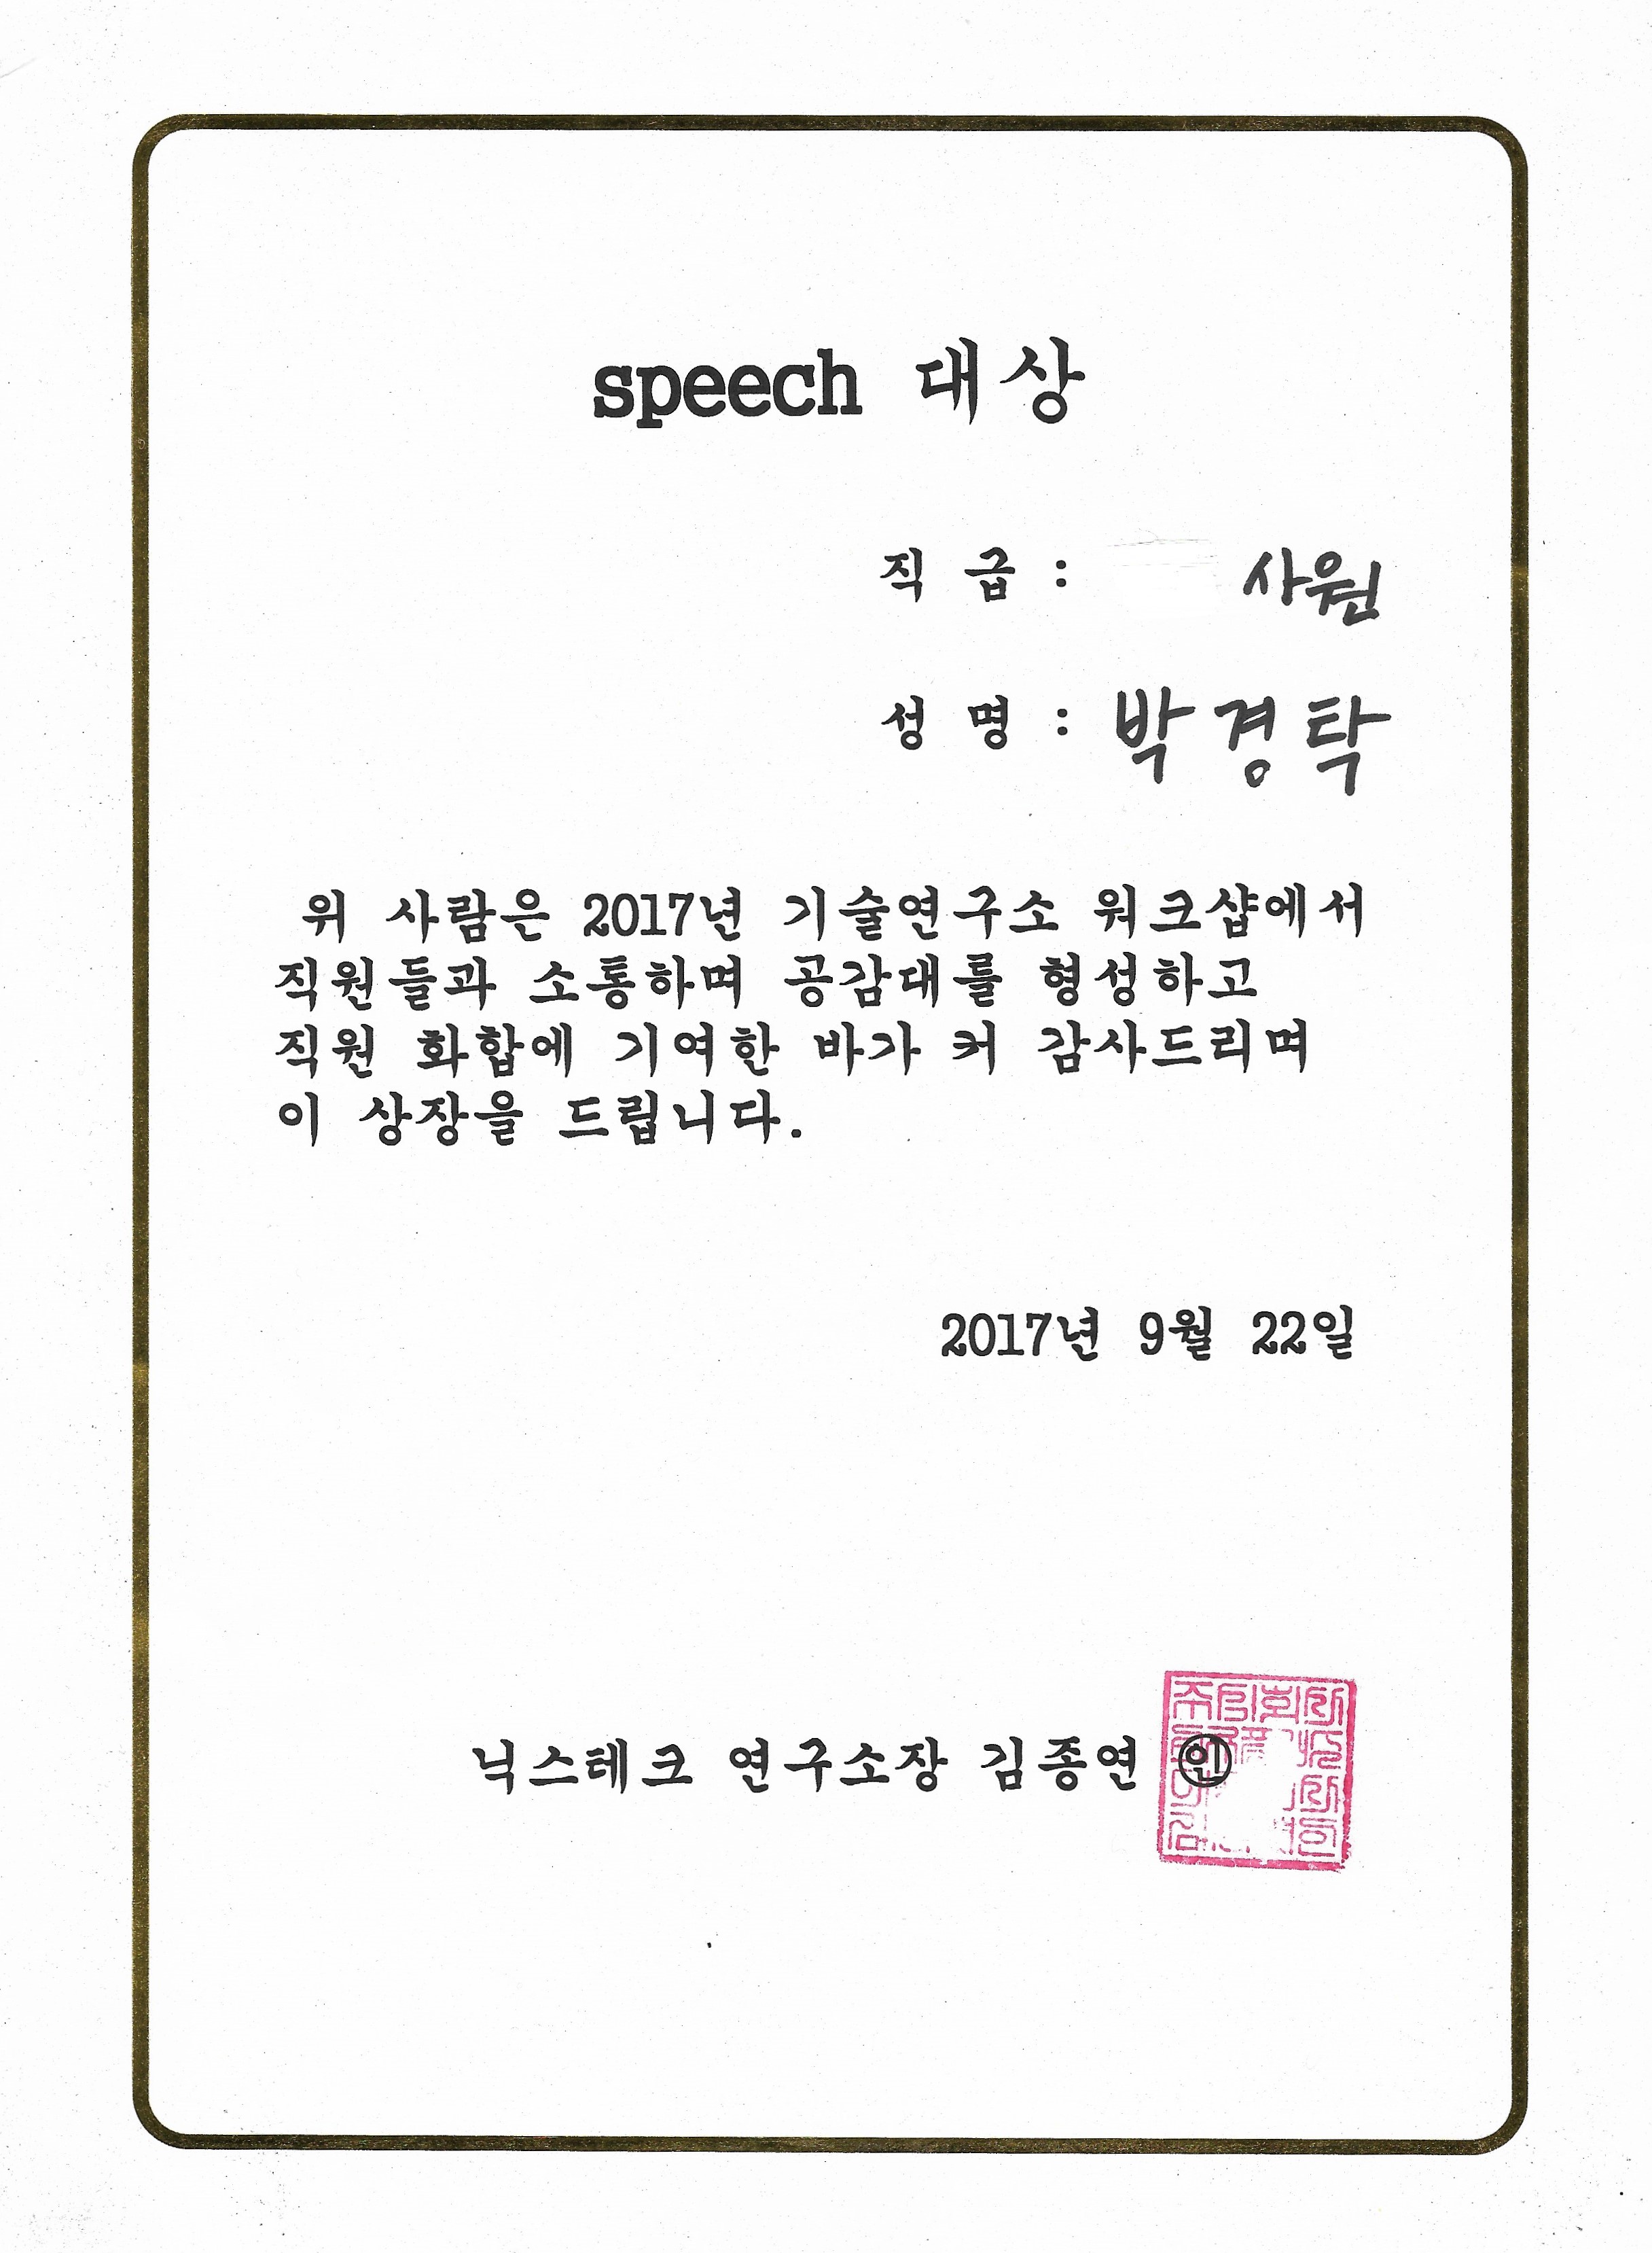 speech 대상
직 급 : 사원
성 명 : 박경탁
위 사람은 2017년 기술연구소 워크샵에서
직원들과 소통하며 공감대를 형성하고
직원 화합에 기여한 바가 커 감사드리며
이 상장을 드립니다.
2017년 9월 22일
닉스테크 연구소장 김종연 ㊞